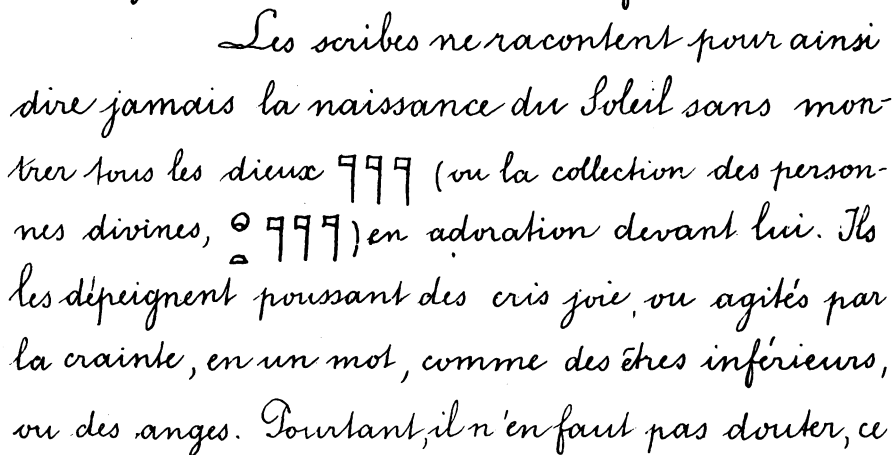 Les scribes ne racontent pour ainsi
dire jamais la naissance du Soleil sans mon-
trer tous les dieux 𓊹𓊹𓊹 (ou la collection des person-
nes divines, 𓐍𓏏𓊹𓊹𓊹) en adoration devant lui. Ils
les dépeignent poussant des cris joie, ou agités par
la crainte, en un mot, comme des êtres inférieurs,
ou des anges. Pourtant, il n'en faut pas douter, ce